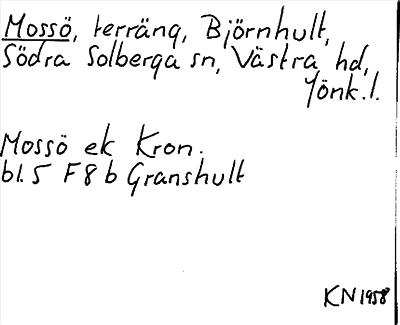 Mossö, terräng, Björnhult,
Södra Solberga sn, Västra hd,
Jönk.l.
Mossö ek Kron.
bl. 5 F 8 b Granshult
KN 1958